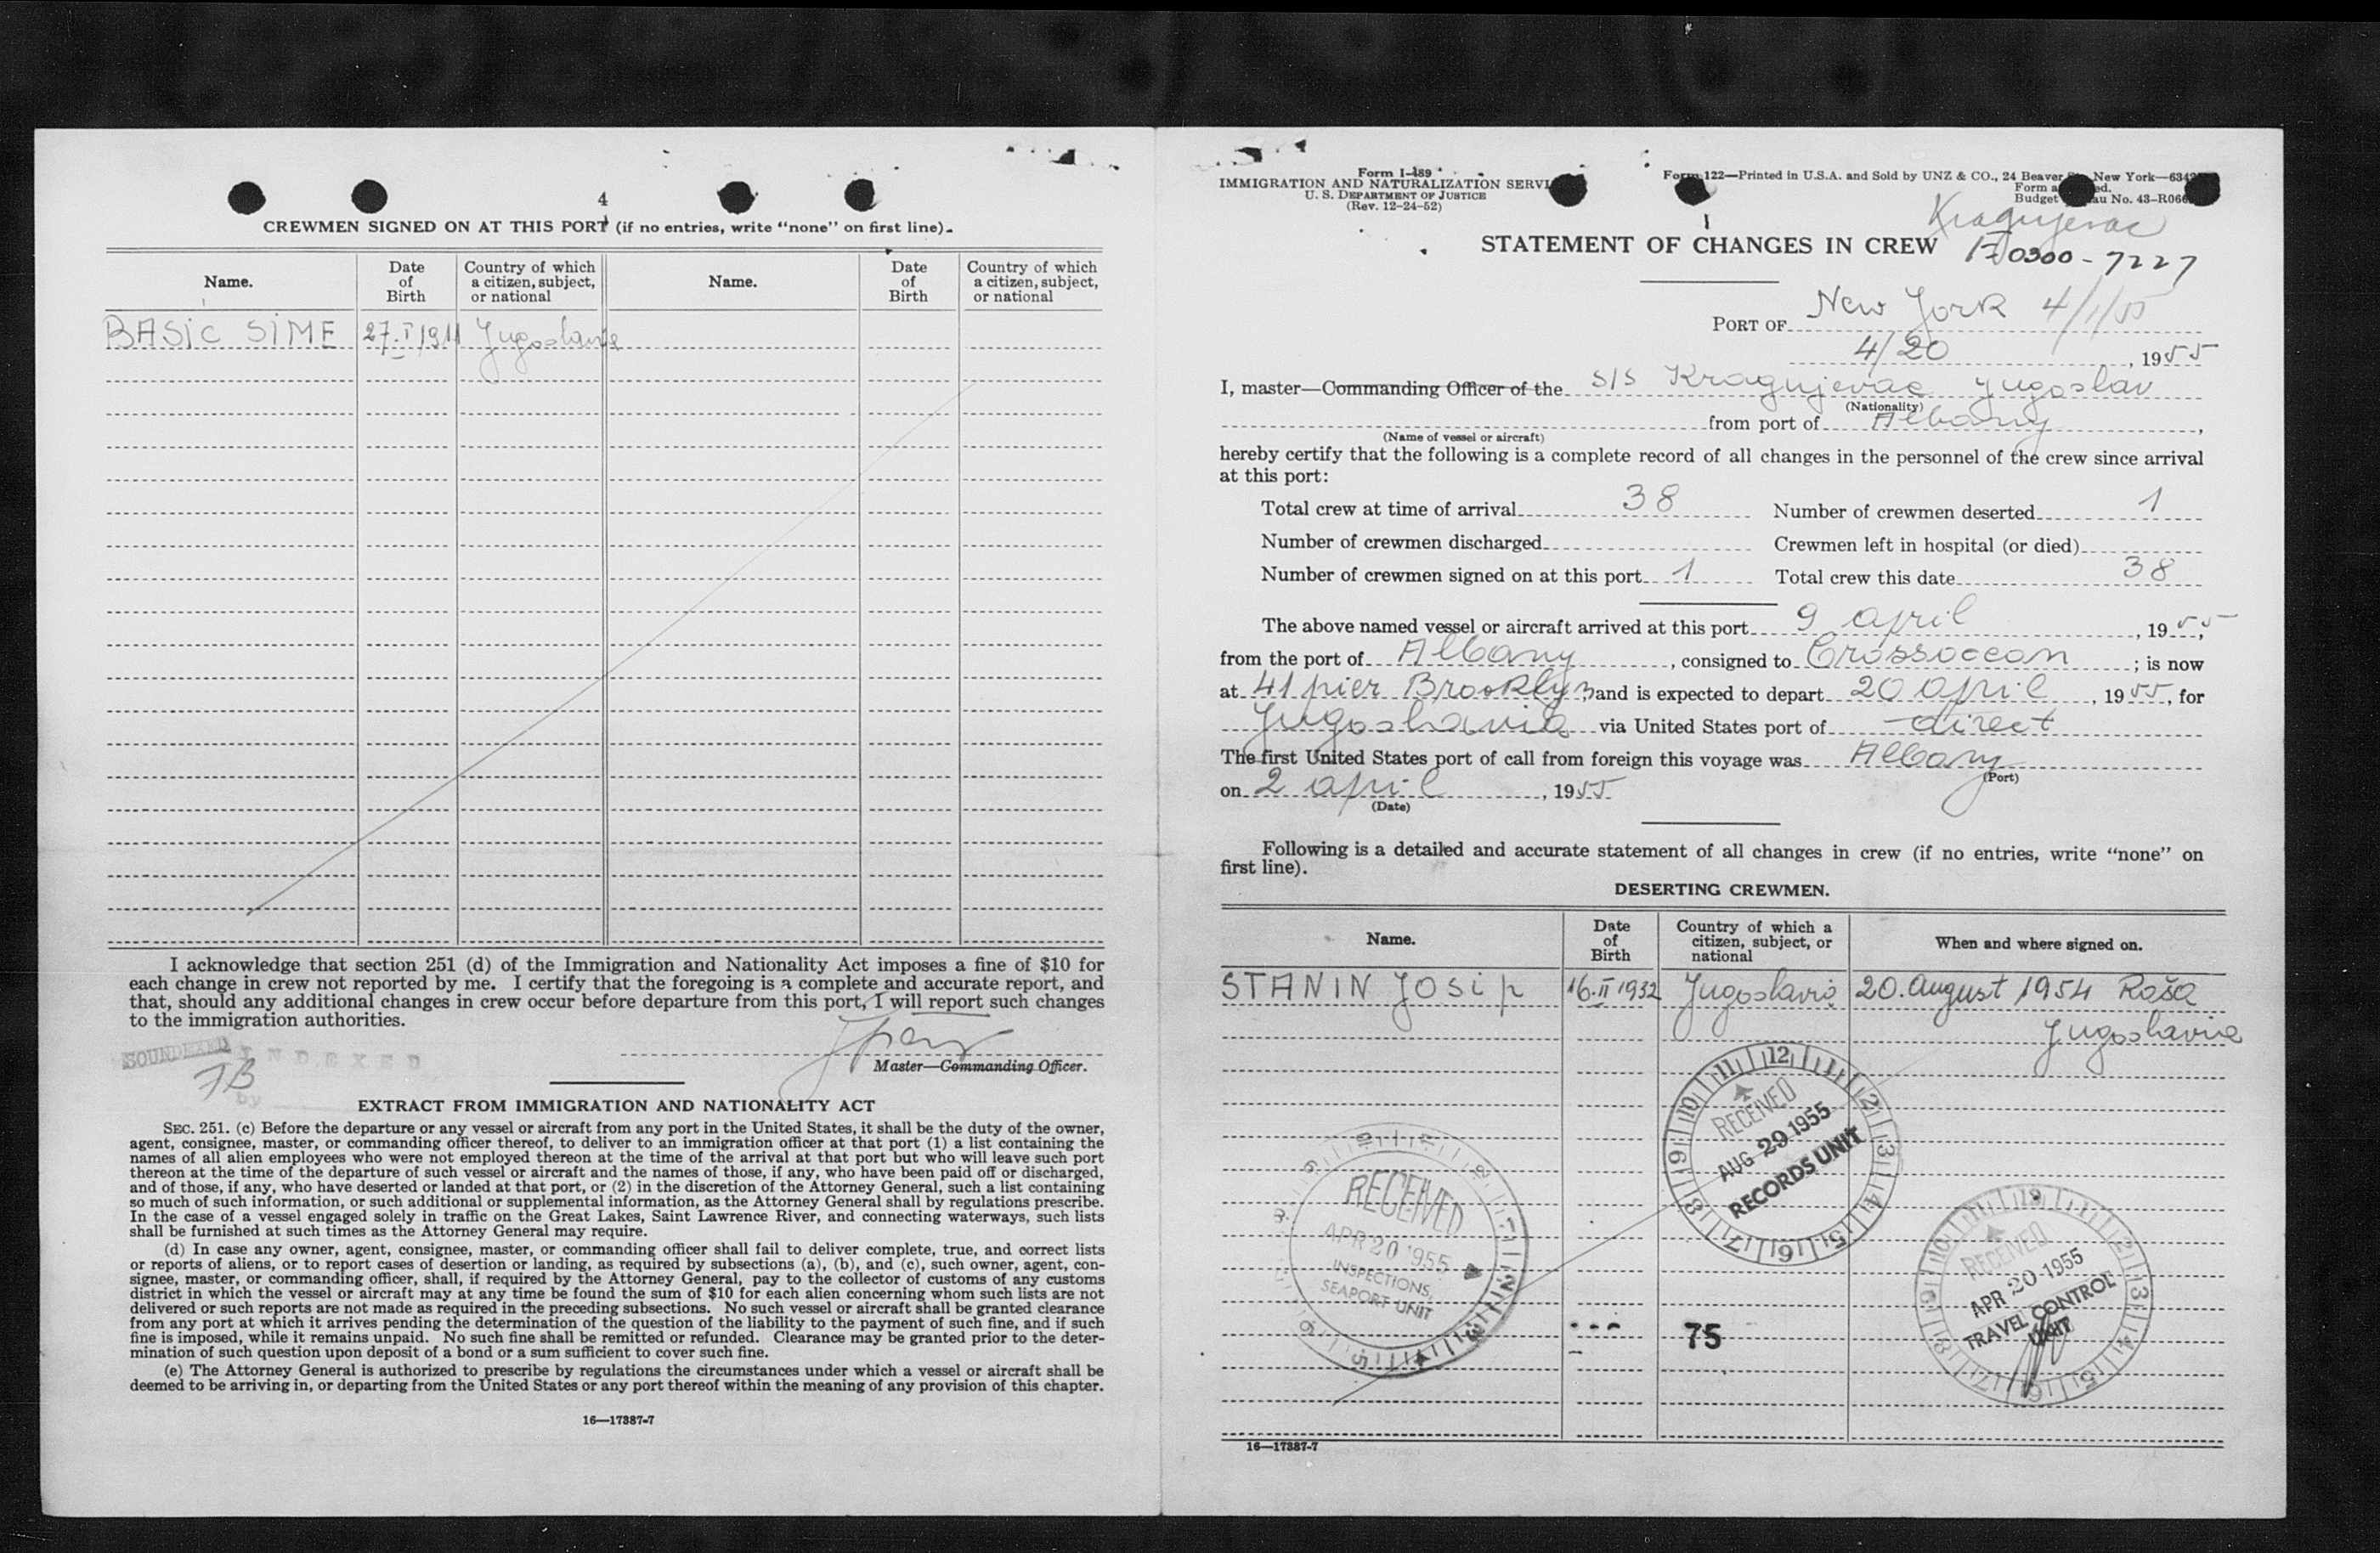 4
CREWMEN SIGNED ON AT THIS PORT (if no entries, write “none” on first line).
Name. Date of Birth Country of which a citizen, subject, or national Name. Date of Birth Country of which a citizen, subject, or national
BASIC SIME 27.I 1911 Yugoslavia
I acknowledge that section 251 (d) of the Immigration and Nationality Act imposes a fine of $10 for
each change in crew not reported by me. I certify that the foregoing is a complete and accurate report, and
that, should any additional changes in crew occur before departure from this port, I will report such changes
to the immigration authorities.
SOUNDEXED INDEXED
by
Master—Commanding Officer.
EXTRACT FROM IMMIGRATION AND NATIONALITY ACT
SEC. 251. (c) Before the departure or any vessel or aircraft from any port in the United States, it shall be the duty of the owner,
agent, consignee, master, or commanding officer thereof, to deliver to an immigration officer at that port (1) a list containing the
names of all alien employees who were not employed thereon at the time of the arrival at that port but who will leave such port
thereon at the time of the departure of such vessel or aircraft and the names of those, if any, who have been paid off or discharged,
and of those, if any, who have deserted or landed at that port, or (2) in the discretion of the Attorney General, such a list containing
so much of such information, or such additional or supplemental information, as the Attorney General shall by regulations prescribe.
In the case of a vessel engaged solely in traffic on the Great Lakes, Saint Lawrence River, and connecting waterways, such lists
shall be furnished at such times as the Attorney General may require.
(d) In case any owner, agent, consignee, master, or commanding officer shall fail to deliver complete, true, and correct lists
or reports of aliens, or to report cases of desertion or landing, as required by subsections (a), (b), and (c), such owner, agent, con-
signee, master, or commanding officer, shall, if required by the Attorney General, pay to the collector of customs of any customs
district in which the vessel or aircraft may at any time be found the sum of $10 for each alien concerning whom such lists are not
delivered or such reports are not made as required in the preceding subsections. No such vessel or aircraft shall be granted clearance
from any port at which it arrives pending the determination of the question of the liability to the payment of such fine, and if such
fine is imposed, while it remains unpaid. No such fine shall be remitted or refunded. Clearance may be granted prior to the deter-
mination of such question upon deposit of a bond or a sum sufficient to cover such fine.
(e) The Attorney General is authorized to prescribe by regulations the circumstances under which a vessel or aircraft shall be
deemed to be arriving in, or departing from the United States or any port thereof within the meaning of any provision of this chapter.
16—17387-7
Form I-489
IMMIGRATION AND NATURALIZATION SERVI
U. S. DEPARTMENT OF JUSTICE
(Rev. 12-24-52)
Form 122—Printed in U.S.A. and Sold by UNZ & CO., 24 Beaver New York—
Budget No. 43-R06
Kragujevac
1
STATEMENT OF CHANGES IN CREW 0300-7227
PORT OF New York 4/1/55
4/20, 1955
I, master—Commanding Officer of the S/S Kragujevac Yugoslav
(Nationality)
from port of Albany,
(Name of vessel or aircraft)
hereby certify that the following is a complete record of all changes in the personnel of the crew since arrival
at this port:
Total crew at time of arrival 38 Number of crewmen deserted 1
Number of crewmen discharged Crewmen left in hospital (or died)
Number of crewmen signed on at this port 1 Total crew this date 38
The above named vessel or aircraft arrived at this port 9 april, 1955,
from the port of Albany, consigned to Crossocean; is now
at 41 pier Brooklyn, and is expected to depart 20 april, 1955, for
Yugoslavia via United States port of direct
The first United States port of call from foreign this voyage was Albany
(Port)
on 2 april, 1955
(Date)
Following is a detailed and accurate statement of all changes in crew (if no entries, write “none” on
first line).
DESERTING CREWMEN.
Name. Date of Birth Country of which a citizen, subject, or national When and where signed on.
STANIN Josip 16.II 1932 Yugoslavia 20. August 1954 Raša
Yugoslavia
RECEIVED
AUG 29 1955
RECORDS UNIT
RECEIVED
APR 20 1955
INSPECTIONS,
SEAPORT UNIT
RECEIVED
APR 20 1955
TRAVEL CONTROL
UNIT
75
16—17387-7